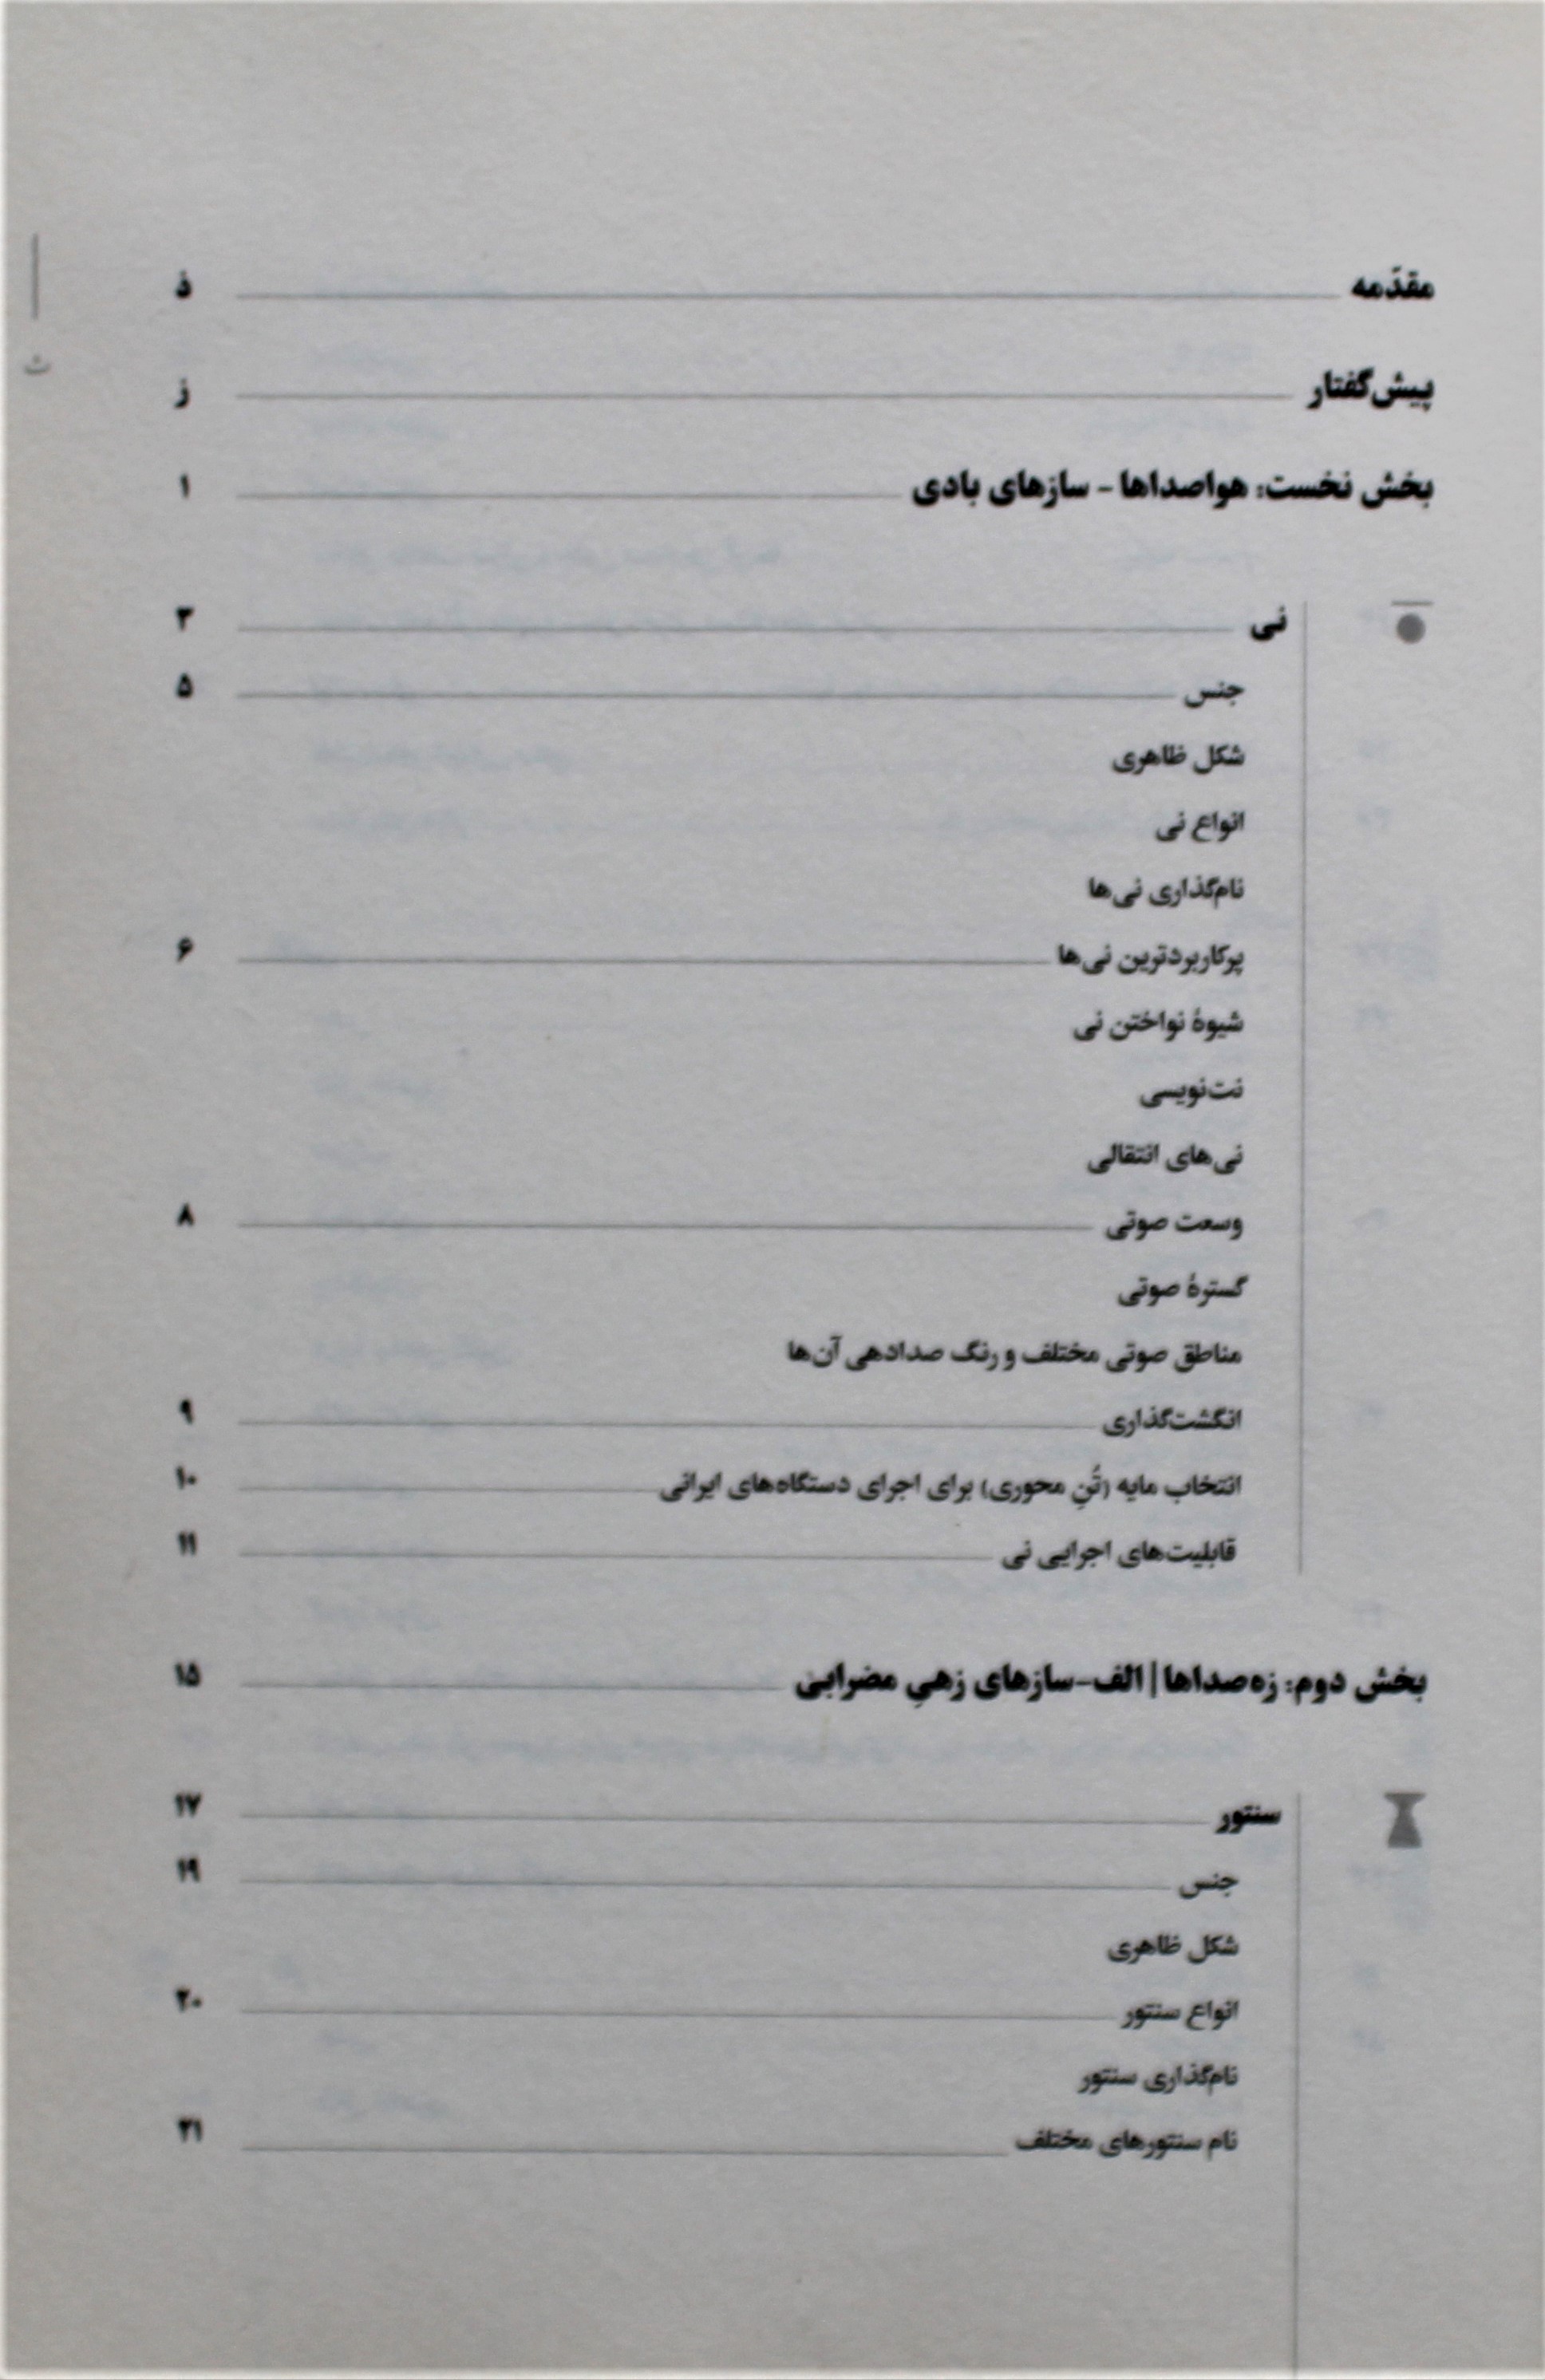 مقدّمه ذ
پیش‌گفتار ز
بخش نخست: هواصداها - سازهای بادی ۱
نی ۳
جنس ۵
شکل ظاهری
انواع نی
نام‌گذاری نی‌ها
پرکاربردترین نی‌ها ۶
شیوهٔ نواختن نی
نت‌نویسی
نی‌های انتقالی
وسعت صوتی ۸
گسترهٔ صوتی
مناطق صوتی مختلف و رنگ صدادهی آن‌ها
انگشت‌گذاری ۹
انتخاب مایه (تُنِ محوری) برای اجرای دستگاه‌های ایرانی ۱۰
قابلیت‌های اجرایی نی ۱۱
بخش دوم: زه‌صداها | الف-سازهای زهیِ مضرابی ۱۵
سنتور ۱۷
جنس ۱۹
شکل ظاهری
انواع سنتور ۲۰
نام‌گذاری سنتور
نام سنتورهای مختلف ۲۱
ث